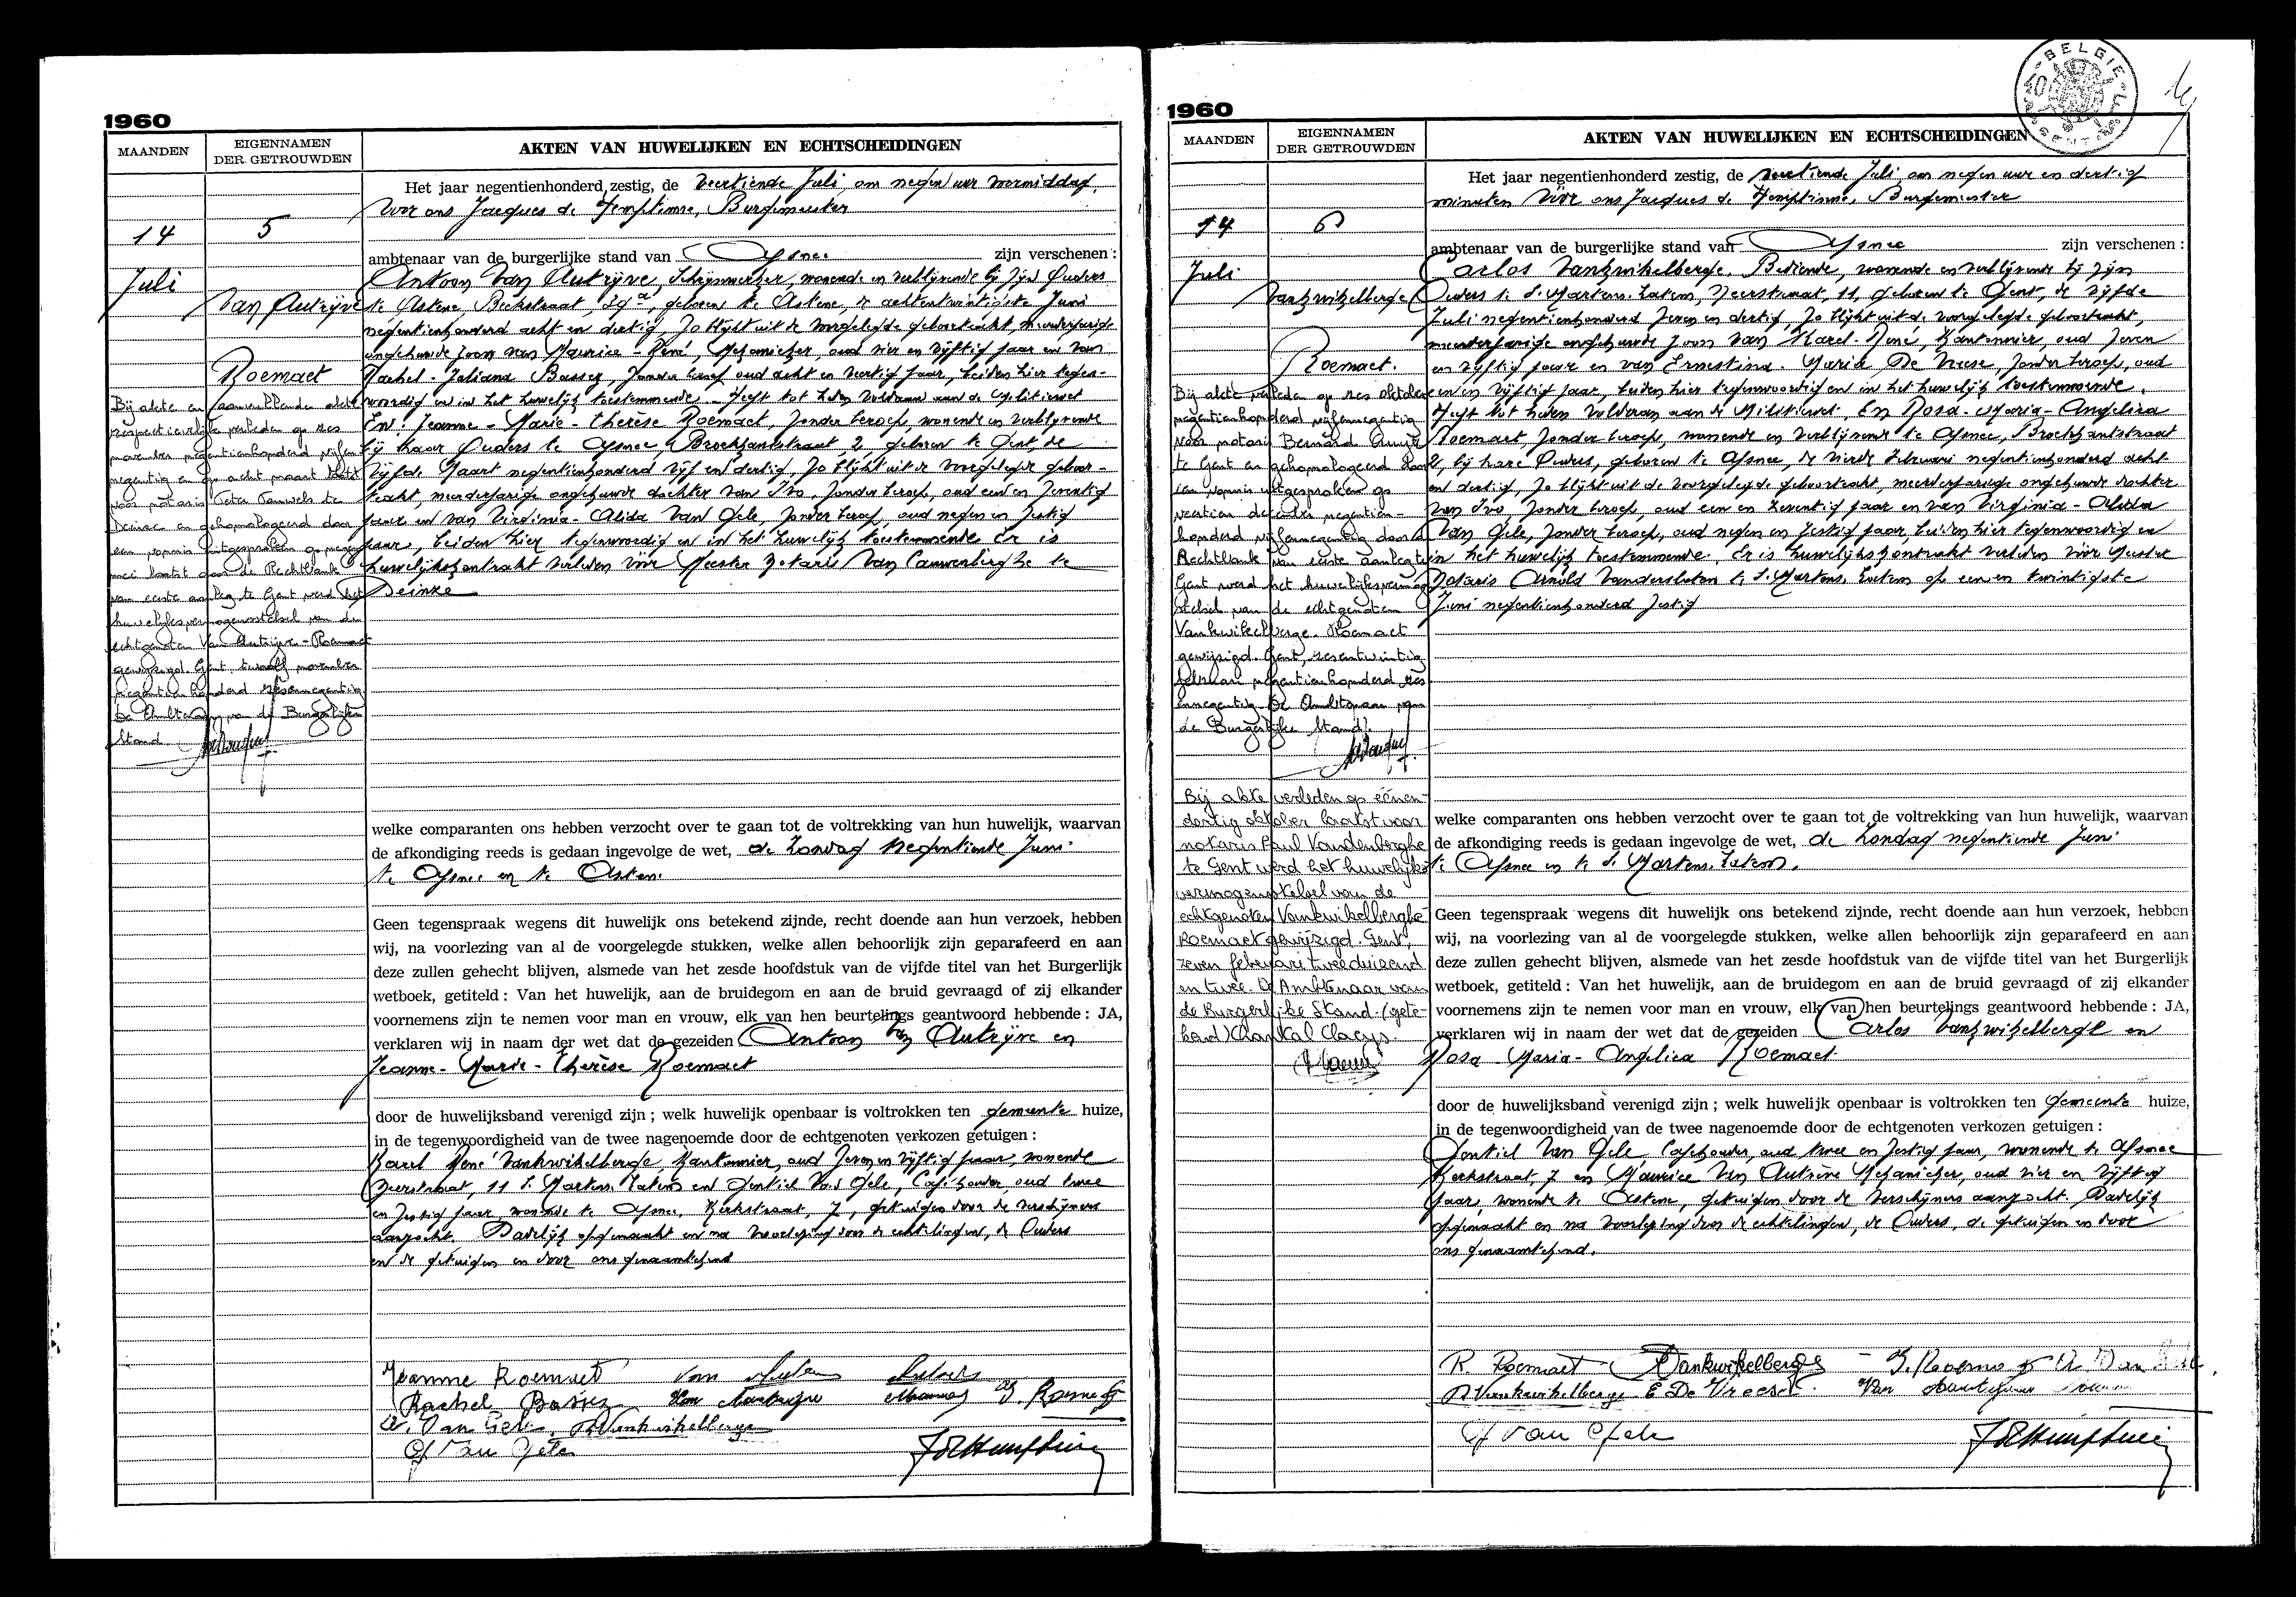 1960
MAANDEN
EIGENNAMEN
DER GETROUWDEN
AKTEN VAN HUWELIJKEN EN ECHTSCHEIDINGEN
14
Juli
5
Van Autrijve
Roemaet
Het jaar negentienhonderd zestig, de veertiende Juli om negen uur voormiddag,
voor ons Jacques de Hemptinne, Burgemeester
ambtenaar van de burgerlijke stand van Afsnee zijn verschenen :
Antoon Van Autrijve, Schrijnwerker, wonende en verblijvende bij zijn Ouders
te Astene, Beekstraat, geboren te Astene, de achtentwintigste Juni
negentienhonderd acht en dertig, Zo blijkt uit de voorgelegde geboorteakt meerderjarige
ongehuwde zoon van Maurice - René, Mekanieker, oud vier en vijftig jaar en van
Rachel - Juliana Zonder beroep oud acht en veertig jaar, beiden hier tegen-
woordig en in het huwelijk toestemmende. - Heeft tot heden voldaan aan de Militiewet
En: Jeanne - Marie - Thérèse Roemaet, Zonder beroep, wonende en verblijvende
bij haar Ouders te Afsnee Broekkantstraat 2 geboren te Gent, de
vijfde Maart negentienhonderd vijf en dertig, Zo blijkt uit de voorgelegde geboor-
teakt, meerderjarige ongehuwde dochter van Ivo, Zonder beroep, oud een en Zeventig
jaar en van Virginia - Alida Van Gele, Zonder beroep, oud negen en Zestig
jaar, beiden hier tegenwoordig en in het huwelijk toestemmende Er is
huwelijkskontrakt verleden vóór Meester Notaris Van Cauwenberghe te
Deinze
Bij akte en aanvullende akte
respectievelijk verleden op zes
november negentienhonderd vijfen
negentig en op acht maart laatst
voor notaris Peter Pauwels te
Deinze en gehomologeerd door
een vonnis uitgesproken op negen
mei laatst door de Rechtbank
van eerste aanleg te Gent werd het
huwelijksvermogensstelsel van de
echtgenoten Van Autrijve - Roemaet
gewijzigd. Gent, twaalf november
negentienhonderd zesennegentig
De Ambtenaar van de Burgerlijke
Stand.
welke comparanten ons hebben verzocht over te gaan tot de voltrekking van hun huwelijk, waarvan
de afkondiging reeds is gedaan ingevolge de wet, de Zondag Negentiende Juni
te Afsnee en te Astene
Geen tegenspraak wegens dit huwelijk ons betekend zijnde, recht doende aan hun verzoek, hebben
wij, na voorlezing van al de voorgelegde stukken, welke allen behoorlijk zijn geparafeerd en aan
deze zullen gehecht blijven, alsmede van het zesde hoofdstuk van de vijfde titel van het Burgerlijk
wetboek, getiteld : Van het huwelijk, aan de bruidegom en aan de bruid gevraagd of zij elkander
voornemens zijn te nemen voor man en vrouw, elk van hen beurtelings geantwoord hebbende : JA,
verklaren wij in naam der wet dat de gezeiden Antoon Van Autrijve en
Jeanne - Marie - Thérèse Roemaet
door de huwelijksband verenigd zijn ; welk huwelijk openbaar is voltrokken ten gemeente huize,
in de tegenwoordigheid van de twee nagenoemde door de echtgenoten verkozen getuigen :
Karel René Vankwikelberge, Kantonnier, oud Zeven en vijftig jaar, wonende
Meerstraat, 11 S. Martens Latem en Gentiel Van Gele, Caféhouder, oud twee
en Zestig jaar, wonende te Afsnee, Kerkstraat, 7, getuigen door de verschijners
aangezocht. Dadelijk opgemaakt en na voorlezing door de echtelingen, de Ouders
en de getuigen en door ons genaamtekend
Jeanne Roemaet
Rachel
A. Van Gele R. Vankwikelberge
G Van Gele
1960
MAANDEN
EIGENNAMEN
DER GETROUWDEN
AKTEN VAN HUWELIJKEN EN ECHTSCHEIDINGEN
BELGIE
14
Juli
6
Vankwikelberge
Roemaet.
Het jaar negentienhonderd zestig, de veertiende Juli om negen uur en dertig
minuten vóór ons Jacques de Hemptinne, Burgemeester
ambtenaar van de burgerlijke stand van Afsnee zijn verschenen :
Carlos Vankwikelberge, Bediende, wonende en verblijvende bij zijn
Ouders te S. Martens Latem, Meerstraat, 11, geboren te Gent, de vijfde
Juli negentienhonderd Zeven en dertig, Zo blijkt uit de voorgelegde geboorteakt,
meerderjarige ongehuwde zoon van Karel - René, Kantonnier, oud Zeven
en vijftig jaar en van Ernestina - Maria De Vreese, Zonder beroep, oud
een en vijftig jaar, beiden hier tegenwoordig en in het huwelijk toestemmende.
Heeft tot heden voldaan aan de Militiewet. En Rosa - Maria - Angelica
Roemaet, Zonder beroep, wonende en verblijvende te Afsnee, Broekkantstraat
2, bij hare Ouders, geboren te Afsnee, de vierde Februari negentienhonderd acht
en dertig, Zo blijkt uit de voorgelegde geboorteakt, meerderjarige ongehuwde dochter
van Ivo, Zonder beroep, oud een en Zeventig jaar en van Virginia - Alida
Van Gele, Zonder beroep, oud negen en Zestig jaar, beiden hier tegenwoordig en
in het huwelijk toestemmende. Er is huwelijkskontrakt verleden vóór Meester
Notaris Arnold Vandersluten te S. Martens Latem op een en twintigste
Juni negentienhonderd Zestig
Bij akte verleden op zes oktober
negentienhonderd vijfennegentig
voor notaris Bernard
te Gent en gehomologeerd door
een vonnis uitgesproken op
veertien december negentien-
honderd vijfennegentig door de
Rechtbank van eerste aanleg te
Gent werd het huwelijksvermogen
stelsel van de echtgenoten
Vankwikelberge - Roemaet
gewijzigd. Gent, zesentwintig
februari negentienhonderd zes
ennegentig De Ambtenaar van
de Burgerlijke Stand.
Bij akte verleden op eenen-
dertig oktober laatst voor
notaris Paul Vandenberghe
te Gent werd het huwelijks-
vermogenstelsel van de
echtgenoten Vankwikelberghe
Roemaet gewijzigd. Gent,
zeven februari tweeduizend
en twee. De Ambtenaar van
de Burgerlijke Stand. (gete-
kend) Chantal Claeys.
welke comparanten ons hebben verzocht over te gaan tot de voltrekking van hun huwelijk, waarvan
de afkondiging reeds is gedaan ingevolge de wet, de Zondag negentiende Juni
te Afsnee en te S. Martens Latem.
Geen tegenspraak wegens dit huwelijk ons betekend zijnde, recht doende aan hun verzoek, hebben
wij, na voorlezing van al de voorgelegde stukken, welke allen behoorlijk zijn geparafeerd en aan
deze zullen gehecht blijven, alsmede van het zesde hoofdstuk van de vijfde titel van het Burgerlijk
wetboek, getiteld : Van het huwelijk, aan de bruidegom en aan de bruid gevraagd of zij elkander
voornemens zijn te nemen voor man en vrouw, elk van hen beurtelings geantwoord hebbende : JA,
verklaren wij in naam der wet dat de gezeiden Carlos Vankwikelberge en
Rosa - Maria - Angelica Roemaet.
door de huwelijksband verenigd zijn ; welk huwelijk openbaar is voltrokken ten gemeente huize,
in de tegenwoordigheid van de twee nagenoemde door de echtgenoten verkozen getuigen :
Gentiel Van Gele Caféhouder, oud twee en Zestig jaar, wonende te Afsnee
Kerkstraat, 7 en Maurice Van Autrève Mekanieker, oud vier en vijftig
jaar, wonende te Astene, getuigen door de verschijners aangezocht. Dadelijk
opgemaakt en na voorlezing door de echtelingen, de Ouders, de getuigen en door
ons genaamtekend.
R. Roemaet Vankwikelberge
R. Vankwikelberge E De Vreese
G Van Gele